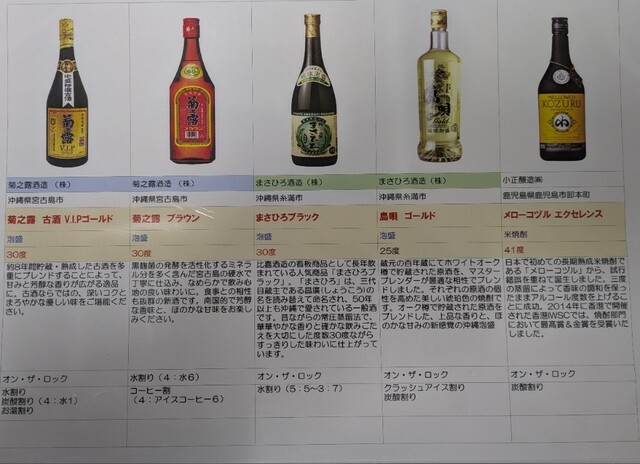 菊之露
V.I.P
菊之露
まさひろ
島唄
Gold
MELLOWED
KOZURU
菊之露酒造（株）
沖縄県宮古島市
菊之露 古酒 V.I.Pゴールド
泡盛
30度
約8年間貯蔵・熟成した古酒を多
重にブレンドすることによって、
甘みと芳香な香りが広がる逸品
に。古酒ならではの、深いコクと
まろやかな優しい味をご堪能くだ
さい。
オン・ザ・ロック
水割り
炭酸割り（4：水1）
お湯割り
菊之露酒造（株）
沖縄県宮古島市
菊之露 ブラウン
泡盛
30度
黒麹菌の発酵を活性化するミネラ
ル分を多く含んだ宮古島の硬水で
丁寧に仕込み、なめらかで飲み心
地の良い味わいに。食事との相性
も抜群の新酒です。南国的で芳香
な香味と、ほのかな甘味をお楽し
みください。
水割り（4：水6）
コーヒー割
（4：アイスコーヒー6）
まさひろ酒造（株）
沖縄県糸満市
まさひろブラック
泡盛
30度
比嘉酒造の看板商品として長年飲
まれている人気商品「まさひろブ
ラック」。「まさひろ」は、三代
目蔵主である昌廣（しょうこう）の
名を読み替えて命名され、50年
以上も沖縄で愛されている一般酒
です。昔ながらの常圧蒸留法で、
華華やかな香りと確かな飲みごた
えを大切にした度数30度ながら
すっきりした味わいに仕上がって
います。
オン・ザ・ロック
水割り（5：5～3：7）
まさひろ酒造（株）
沖縄県糸満市
島唄 ゴールド
泡盛
25度
蔵元の百年蔵にてホワイトオーク
樽で貯蔵された原酒を、マスター
ブレンダーが最適な相性でブレン
ドしました。それぞれの原酒の個
性を高めた美しい琥珀色の焼酎で
す。オーク樽で貯蔵された原酒を
ブレンドした、上品な香りと、ほ
のかな甘みの新感覚の沖縄泡盛
オン・ザ・ロック
クラッシュアイス割り
炭酸割り
小正醸造㈱
鹿児島県鹿児島市卸本町
メローコヅル エクセレンス
米焼酎
41度
日本で初めての長期熟成米焼酎で
ある「メローコヅル」から、試行
錯誤を重ねて誕生しました。三度
の蒸留によって香味の調和を保っ
たままアルコール度数を上げるこ
とに成功。2014年に香港で開催
された香港IWSCでは、焼酎部門
において最高賞＆金賞を受賞いた
しました。
オン・ザ・ロック
炭酸割り